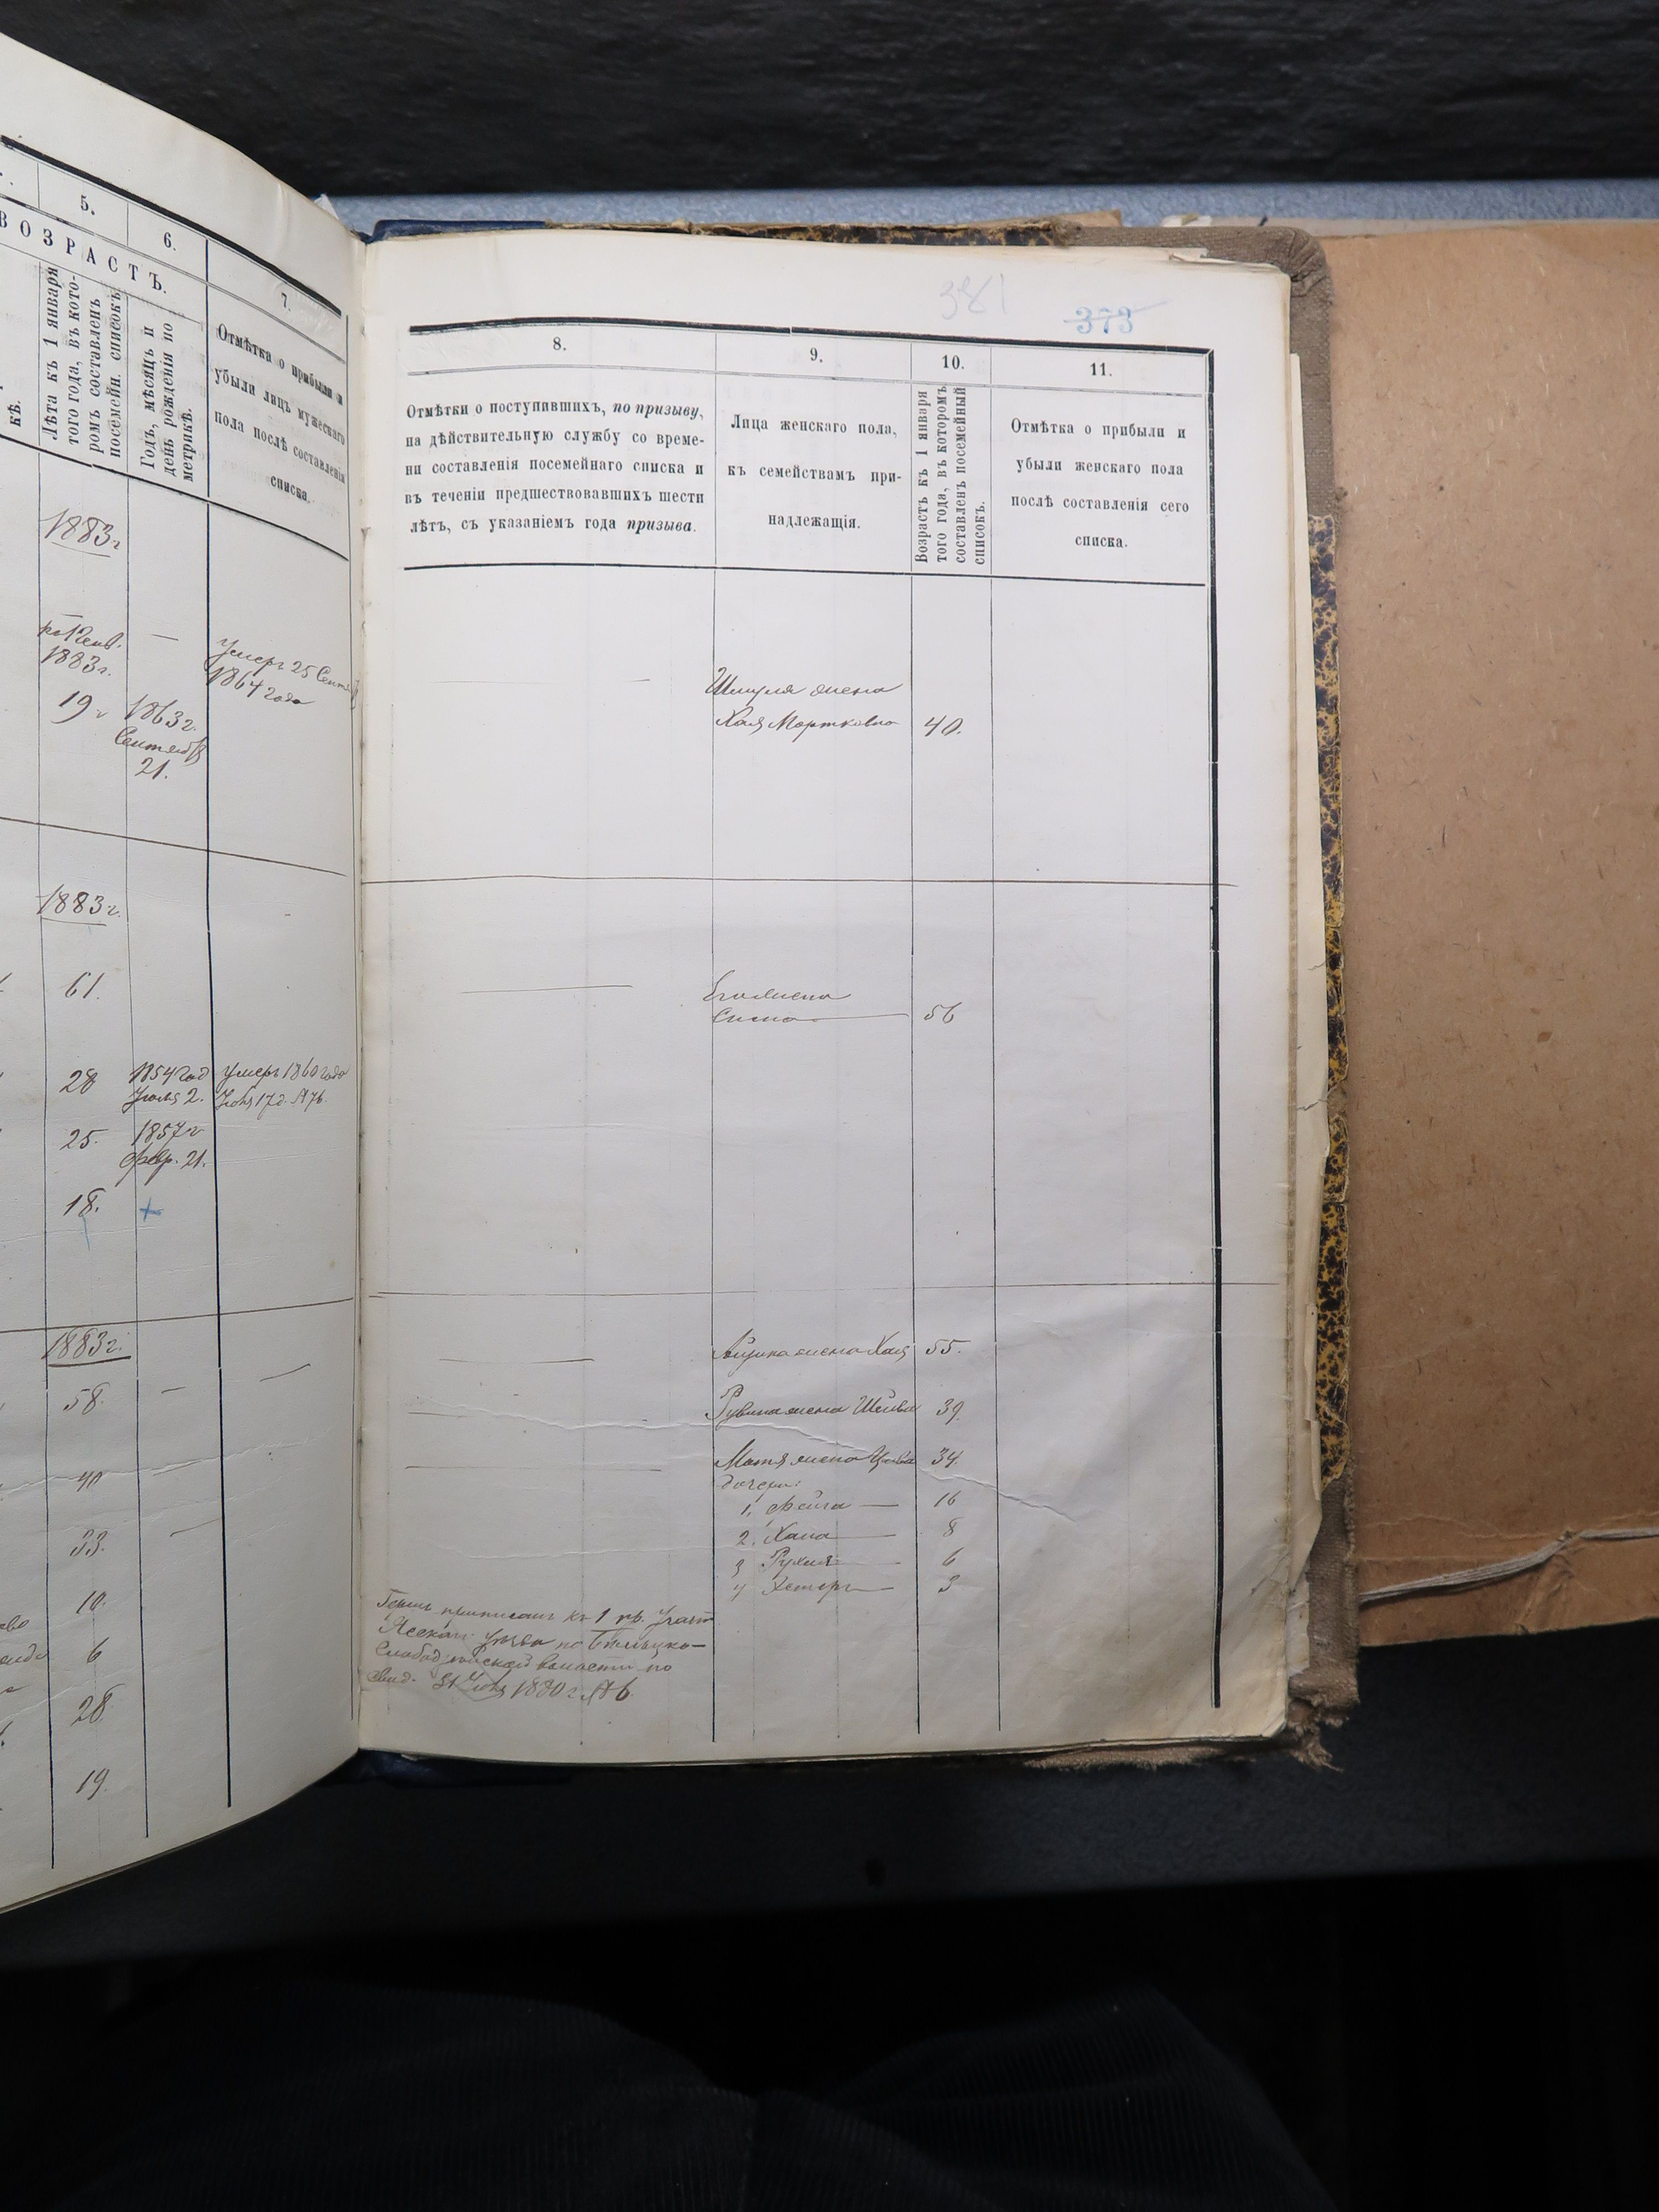 5.
6.
7.
ВОЗРАСТЪ.
Лѣта къ 1 января
того года, въ кото-
ромъ составленъ
посемейн. списокъ
Годъ, мѣсяцъ и
день рожденія по
метрикѣ.
Отмѣтка о прибыли и
убыли лицъ мужескаго
пола послѣ составленія
списка.
кѣ.
1883г
1883г.
19
1863г.
21.
Умеръ 25
1864 года
1883г.
61.
28
1854 год
Іюля 2.
умеръ 1860 года
25.
1857г
Февр. 21.
18.
+
1883г.
58.
40
33.
10.
6
28
19.
381
373
8.
9.
10.
11.
Отмѣтки о поступившихъ, по призыву,
на дѣйствительную службу со време-
ни составленія посемейнаго списка и
въ теченіи предшествовавшихъ шести
лѣтъ, съ указаніемъ года призыва.
Лица женскаго пола,
къ семействамъ при-
надлежащія.
Возрастъ къ 1 января
того года, въ которомъ
составленъ посемейный
списокъ.
Отмѣтка о прибыли и
убыли женскаго пола
послѣ составленія сего
списка.
Шмуля жена
Хая Мортковна 40.
Его жена
56
жена Хая 55.
Рувина жена Шейва 39.
жена 34.
дочери:
1, Фейга 16
2. Хана 8
3 Рухля 6
4 Хетеръ 3
приписанъ къ 1 пр.
волости по
1880 г. №6.